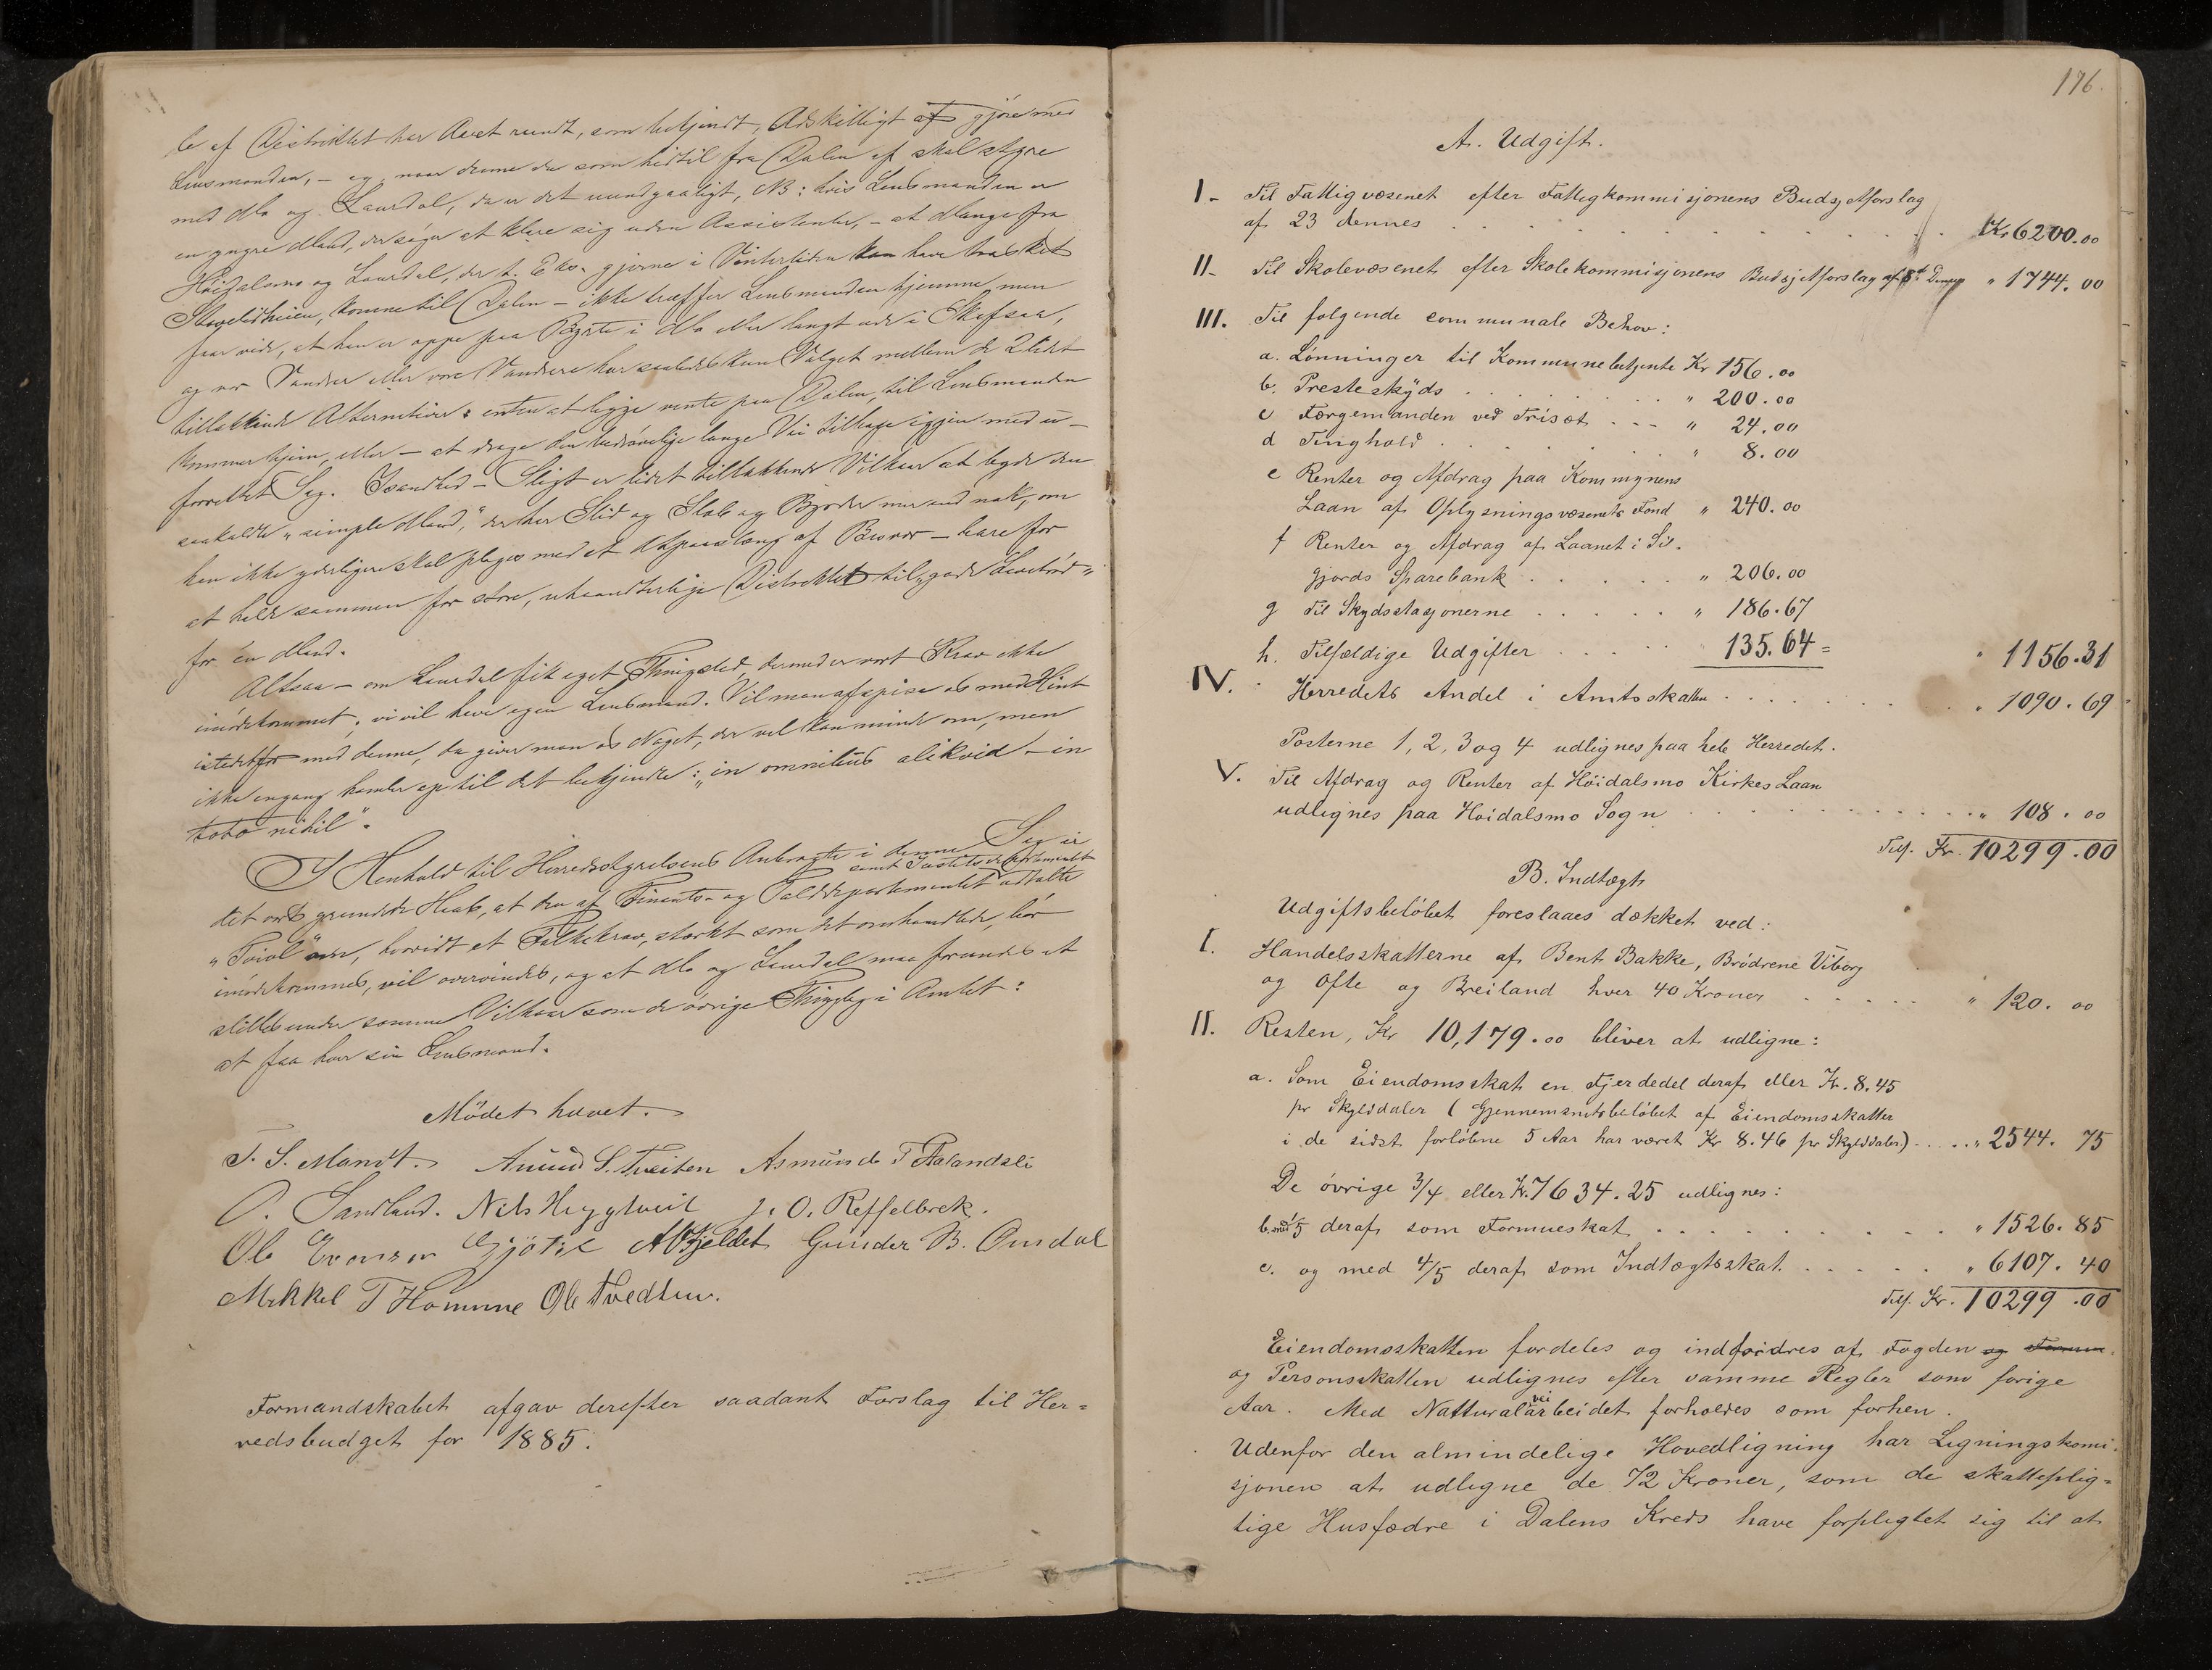 le af Distriktet har Aaret rundt, som bekjendt, Adskilligt at gjöre med
Lensmanden, – og naar denne da som hidtil fra Dalen af skal styre
med Mo og Laurdal, da er det uundgaaligt, NB: hvis Lensmanden er
en yngre Mand, der söger at klare sig uden Assistenter, – at Mange fra
Höidalsmo og Laurdal, der t. Ex. gjerne i Vintertiden kan have trasket
, komme til Dalen – ikke træffer Lensmanden hjemme, men
faar vide, at han er oppe paa Bÿrte i Mo eller langt ude i Skafsaa,
og vor Vandrer eller vore Vandrere har saaledes kun Valget mellem de 2 lidet
tiltalende Alternativer: enten at ligge vente paa Dalen, til Lensmanden
kommer hjem, eller – at drage den bedrövelige lange Vei tilbage iggjen med u-
forrettet Sag. Isandhed – Sligt er lidet tiltalende Vilkaar at byde den
saakaldte „simple Mand,“ der har Slid og Slæb og Byrder mer end nok, om
han ikke yderligere skal plages med et Uhpaaslæng af Besvær – bare for
at holde sammen for store, uhaandterlige Distrikter til „gode Levebröd“
for én Mand.
Altsaa – om Laurdal fik eget Thingsted, dermed er vort Krav ikke
imödekommet; vi vil have egen Lensmand. Vil man afspise os med Hint
istedetfor med denne, da giver man os Noget, der vel kan minde om, men
ikke engang hamle op til det bekjendte: „in omnibus alikvid – in
toto nihil“.
I Henhold til Herredsstyrelsens Anbragte i denne Sag er
samt Justitsdepartementet
det vort grundede Haab, at den af Finants- og Tolddepartementet udtalte
„Tvivl“ , hvorvidt et Folkekrav, stærkt som det omhandlede, bör
imödekommes, vil overvindes, og at Mo og Laurdal maa forundes at
stilles under samme Vilkaar som de övrige Thinglag i Amtet:
at faa hver sin Lensmand.
Mödet hævet.
T. S. Mandt. Aanund S. Tveiten Asmund T Aalandsli
O. Sandland. Nils Hegglveit J. O. Reffelbrek.
Ole Evensen Gjötil A O Fjeldet Gunder B. Omdal
Mikkel T Homme Ole Tvedten.
Formandskabet afgav derefter saadant Forslag til Her=
redsbudget for 1885.
176.
A. Udgift.
I- Til Fattigvæsenet efter Fattigkommisjonens Budsjetforslag
af 23 dennes . . . . Kr 6200.00
II- Til Skolevæsenet efter Skolekommisjonens Budsjetforslag af 8d Dennes „ 1744.00
III. Til følgende communale Behov:
a. Lønninger til Kommunebetjente Kr 156.00
b. Presteskÿds . . . . „ 200.00
c Færgemanden ved Trisæt . . . „ 24.00
d Tinghold . . . . „ 8.00
e Renter og Afdrag paa Kommunens
Laan af Oplysningsvæsenets Fond „ 240.00
f Renter og Afdrag af Laanet i Sil-
gjords Sparebank . . . . „ 206.00
g Til Skydsstasjonerne . . . . „ 186.67
h. Tilfældige Udgifter . . . . „ 135.64 = „ 1156.31
IV. Herredets Andel i Amtsskatten . . . . „ 1090.69
Posterne 1, 2, 3 og 4 udlignes paa hele Herredet.
V. Til Afdrag og Renter af Höidalsmo Kirkes Laan
udlignes paa Höidalsmo Sogn . . . . „ 108.00
Tils. Kr. 10299.00
B. Indtægt
Udgiftsbelöbet foreslaaes dækket ved:
I. Handelsskatterne af Bent Bakke, Brödrene Viborg
og Ofte og Breiland hver 40 Kroner . . . . „ 120.00
II. Resten, Kr 10,179.00 bliver at udligne:
a. Som Eiendomsskat en Fjerdedel deraf eller Kr. 8.45
pr Skylddaler ( Gjennemsnitsbelöbet af Eiendomsskatten
i de sidst forlöbne 5 Aar har været Kr 8.46 pr Skylddaler) . . . . „ 2544.75
De övrige 3/4 eller Kr. 7634.25 udlignes:
b. med 1/5 deraf som Formueskat . . . . „ 1526.85
c. og med 4/5 deraf som Indtægtsskat . . . . „ 6107.40
Tils. Kr. 10299.00
Eiendomsskatten fordeles og indfordres af Fogden og Formue
og Personsskatten udlignes efter samme Regler som forige
Aar. Med Natturalveiarbeidet forholdes som forhen.
Udenfor den almindelige Hovedligning har Ligningskomi-
sjonen at udligne de 72 Kroner, som de skatteplig-
tige Husfædre i Dalens Kreds have forpligtet sig til at